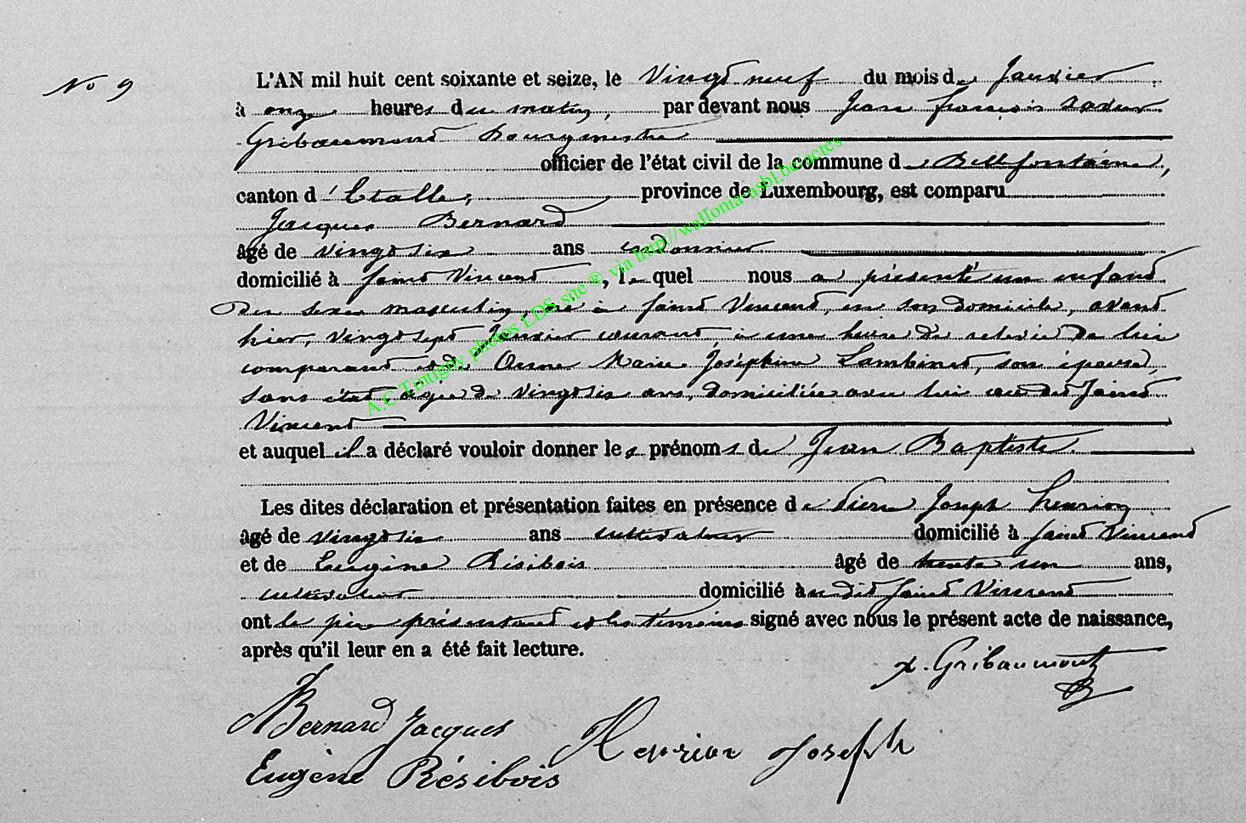 No 9
L'AN mil huit cent soixante et seize, le Vingt neuf du mois de Janvier
à onze heures du matin, par devant nous Jean françois xavier
Gribaumont Bourgmestre
officier de l'état civil de la commune de Bellefontaine,
canton d'Etalle, province de Luxembourg, est comparu
Jacques Bernard
âgé de vingt six ans cordonnier
domicilié à Saint Vincent, lequel nous a présenté un enfant
du sexe masculin, né à Saint Vincent, en son domicile, avant
hier, vingt sept Janvier courant, à une heure de relevée de lui
comparant et de Anne Marie Joséphine Lambinet, son épouse,
sans état, agée de vingt six ans, domiciliée avec lui au dit Saint
Vincent
et auquel il a déclaré vouloir donner les prénoms de Jean Baptiste.
Les dites déclaration et présentation faites en présence de Pierre Joseph Henrion
âgé de vingt six ans cultivateur domicilié à Saint Vincent
et de Eugène Résibois âgé de trente un ans,
cultivateur domicilié au dit Saint Vincent
ont le père présentant et les témoins signé avec nous le présent acte de naissance,
après qu'il leur en a été fait lecture.
x. Gribaumont
Bernard Jacques
Henrion Joseph
Eugène Résibois
A.C Tintigny photos LDS site ® via http://walloma-asbl.be/actes